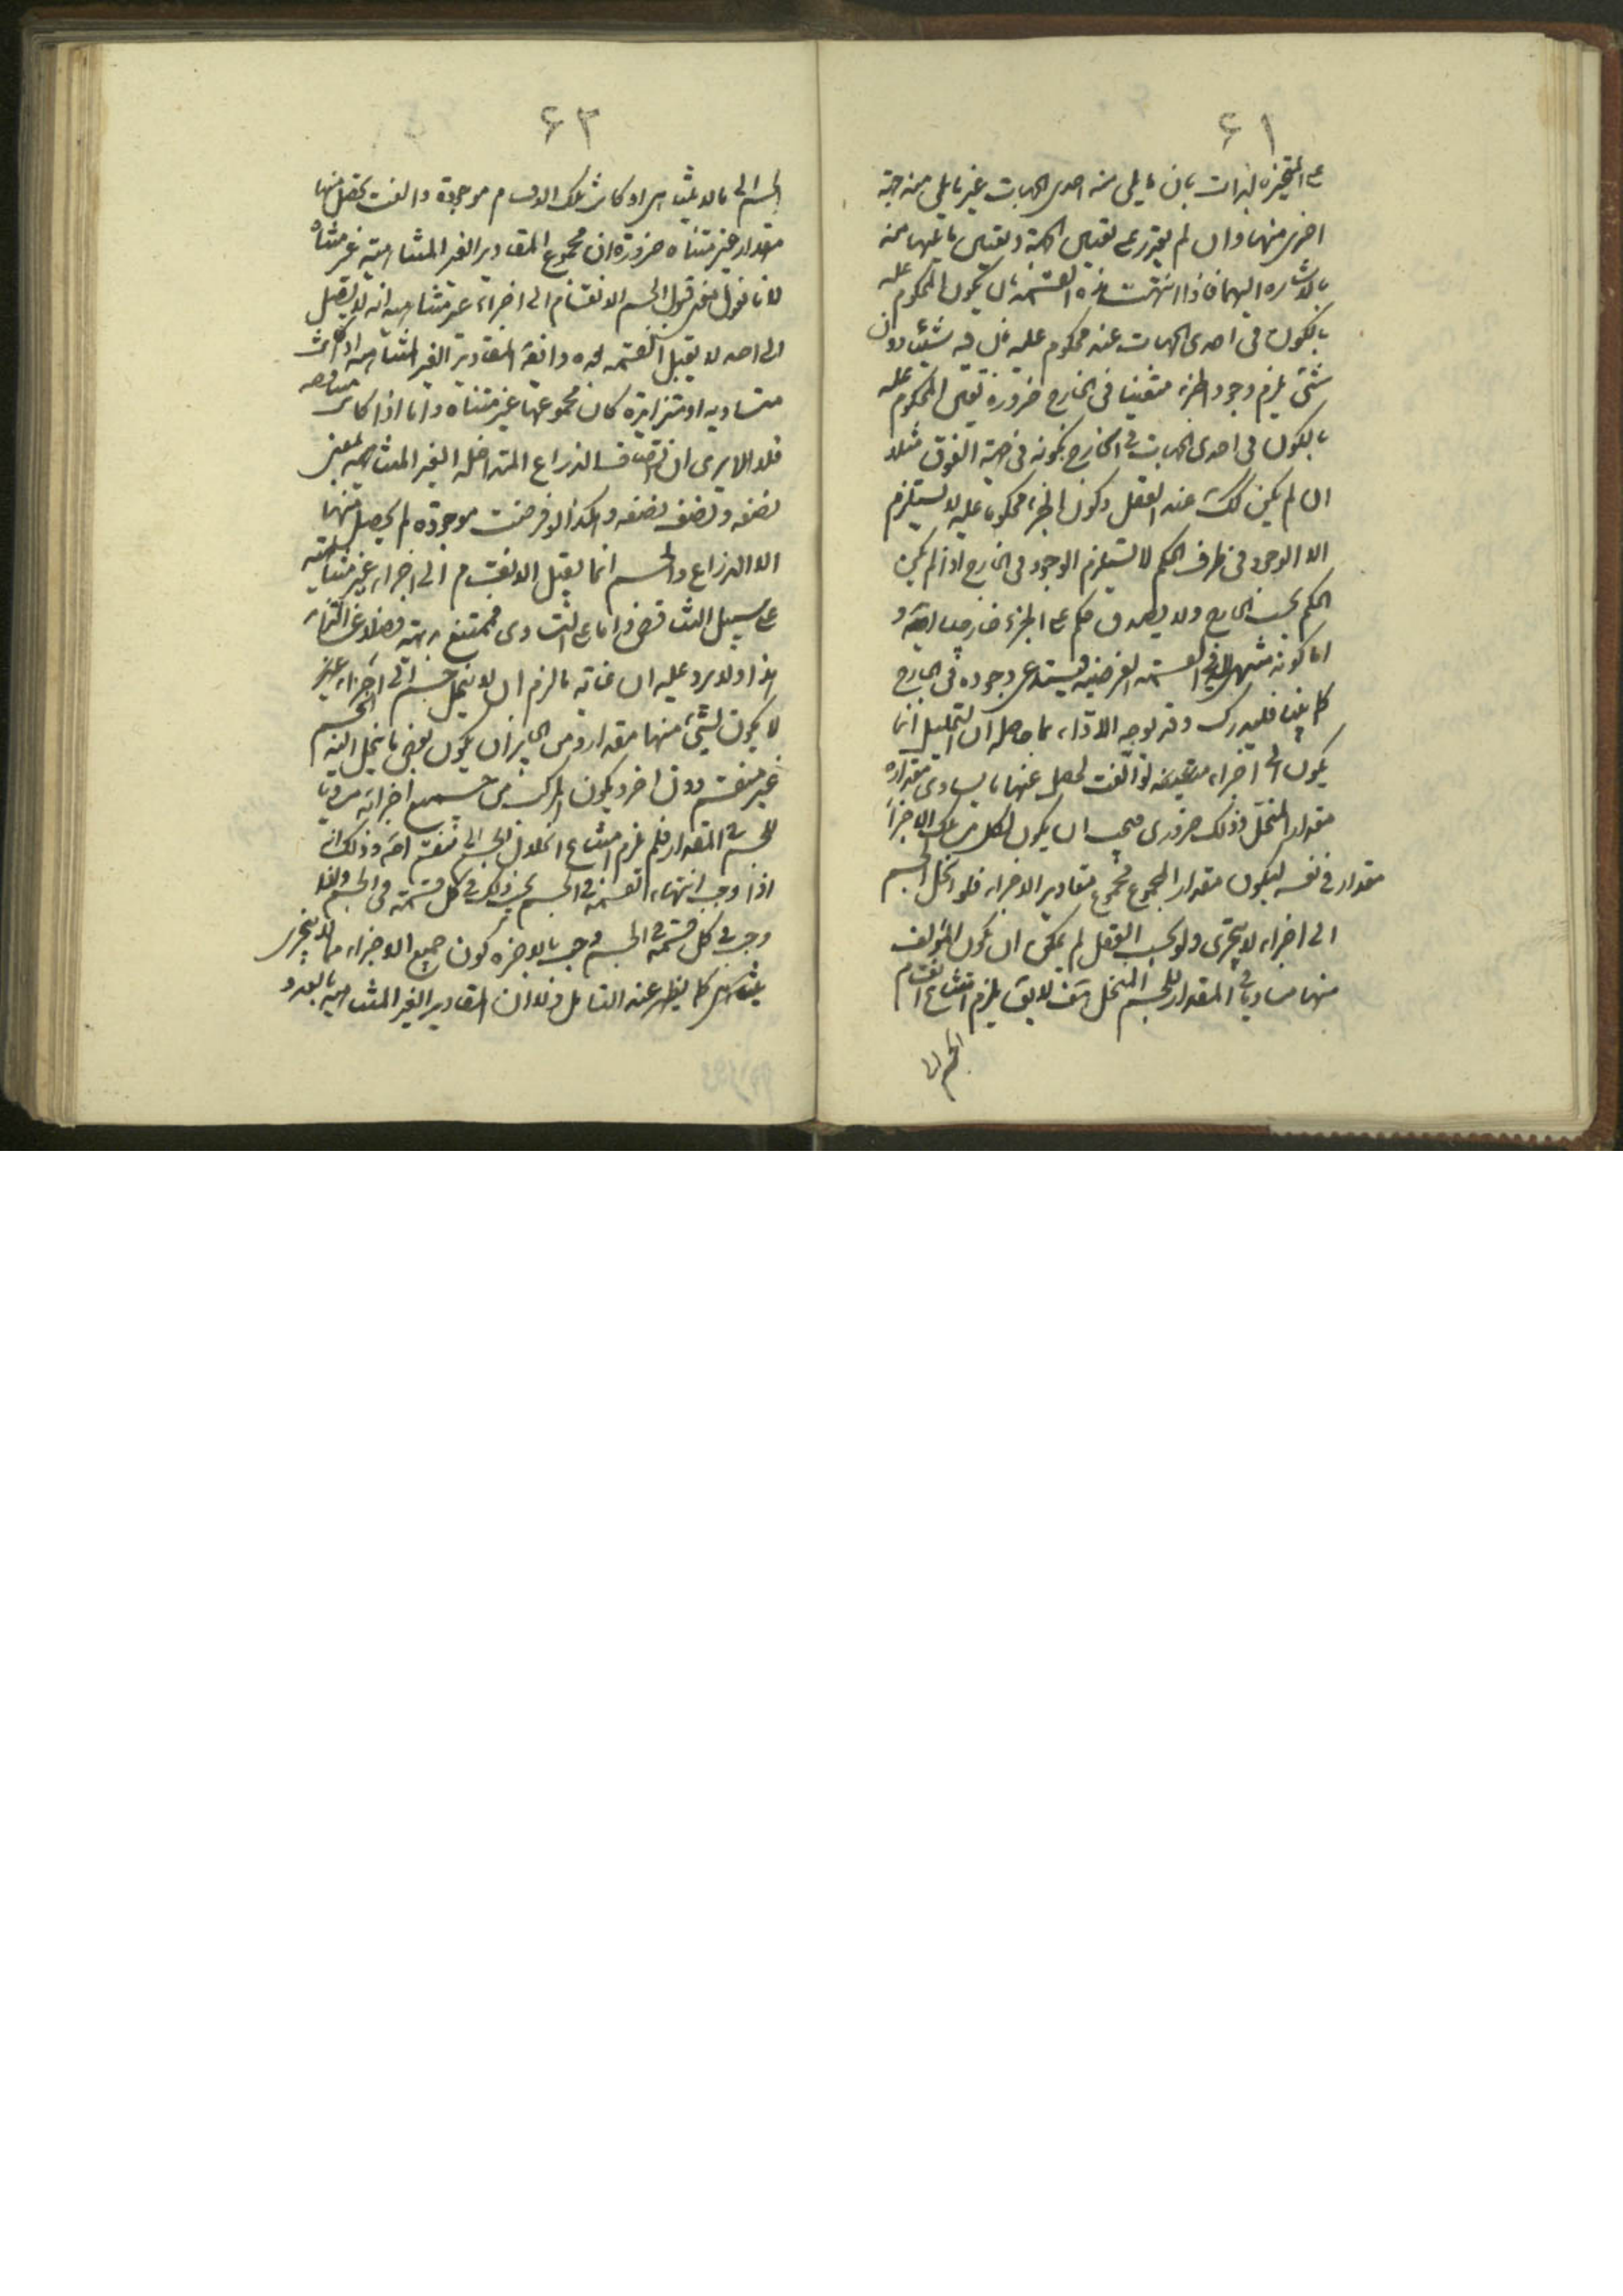 ٦١
على المتحيز بالذات بان ما يلى منه احدى الجهات غير ما يلى منه جهة
اخرى منها وان لم يقدر على تعيين الجهة وتعيين ما يليها منه
بالاشاره اليهما فاذا انتهت هذه القسمة بان يكون المحكوم عليه
بالكون فى احدى الجهات عنده محكوم عليه فان فيه شيئا دون
شئ يلزم وجود الجزء متعينا فى الخارج ضرورة تعين المحكوم عليه
بالكون فى احدى الجهات فى الخارج ككونه فى جهة الفوق مثلا
ان لم يكن كذلك عند العقل وكون الجزء محكوما عليه لا يستلزم
الا الوجود فى ظرف الحكم لا يستلزم الوجود فى الخارج اذا لم يكن
الحكم بحسب الخارج ولا يصدق حكم على الجزء خارجيا اصلا و
اما كونه منتهى فى القسمة الفرضية فيستدعى وجوده فى الخارج
كما بينا فليدرك وقد توجه الادلة بما حاصله ان التحليل انما
يكون الى اجزاء متعينه لو الفت لحصل عنها ما يساوى مقداره
مقدار المنحل وذلك ضرورى فيجب ان يكون لكل من تلك الاجزاء
مقدار فى نفسه ليكون مقدار المجموع مجموع مقادير الاجزاء فلو انحل الجسم
الى اجزاء لا يتجزى ولو بحسب العقل لم يمكن ان يكون المؤلف
منها مساويا فى المقدار للجسم المنحل هف لا يق يلزم امتناع انقسام
الجسم الى
٦٢
الجسم الى ما لا يتناهى اذ لو كانت تلك الاقسام موجودة والفت يحصل منها
مقدار غير متناه ضرورة ان مجموع المقادير الغير المتناهية غير متناه
لانا نقول معنى قبول الجسم الانقسام الى اجزاء غير متناهيه انه لا يصل
الى احد لا يقبل القسمة بعده وايضا المقادير الغير المتناهيه اذا كانت
متساويه او متزايدة كان مجموعها غير متناه واما اذا كانت متناقصه
فلا الا يرى ان انصاف الذراع المتداخله الغير المتناهيه بمعنى
نصفه ونصف نصفه وهكذا لو فرضت موجوده لم يحصل منها
الا الذراع والجسم انما يقبل الانقسام الى اجزاء غير متناهيه
على سبيل التناقص واما على التساوى فممتنع بداهة فضلا عن التزايد
هذا ولا يرد عليه ان غاية ما لزم ان لا ينحل جسم الى اجزاء غير
لا يكون لشئ منها مقدار ومن الجايز ان يكون بعض ما ينحل اليه الجسم
غير منقسم دون اخر ويكون المركب من جميع اجزائه مساويا
للجسم فى المقدار فلم يلزم امتناع انحلال الجسم الى غير منقسم اصلا وذلك لانه
اذا وجب انتهاء القسمة فى الجسم يجب ذلك فى كل قسمة فى الجسم واذا
وجب فى كل قسمة فى الجسم وجب بالاخره كون جميع الاجزاء مما لا يتجزى
يتناهى كما يظهر عند التأمل فلان المقادير الغير المتناهيه بالعدد